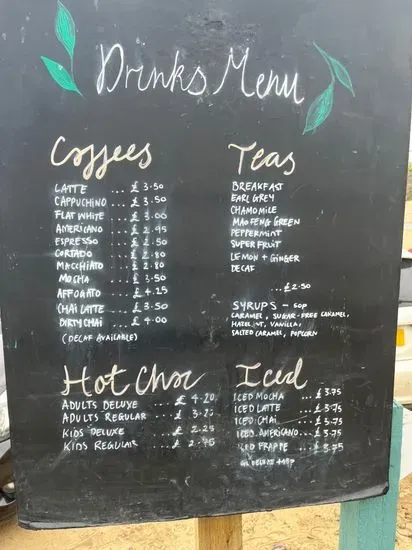 Drinks Menu
Coffees
LATTE ... £ 3.50
CAPPUCHINO ... £ 3.50
FLAT WHITE ... £ 3.00
AMERICANO ... £ 2.95
ESPRESSO ... £ 2.50
CORTADO ... £ 2.80
MACCHIATO ... £ 2.80
MOCHA ... £ 3.50
AFFOGATO ... £ 4.25
CHAI LATTE ... £ 3.50
DIRTY CHAI ... £ 4.00
(DECAF AVAILABLE)
Teas
BREAKFAST
EARL GREY
CHAMOMILE
MAO FENG GREEN
PEPPERMINT
SUPER FRUIT
LEMON + GINGER
DECAF
... £2.50
SYRUPS - 50P
CARAMEL, SUGAR-FREE CARAMEL,
HAZELNUT, VANILLA,
SALTED CARAMEL, POPCORN
Hot Choc
ADULTS DELUXE ... £ 4.20
ADULTS REGULAR ... £ 3.20
KIDS DELUXE ... £ 2.25
KIDS REGULAR ... £
Iced
ICED MOCHA ... £ 3.75
ICED LATTE ... £ 3.75
ICED CHAI ... £ 3.75
ICED AMERICANO ... £ 3.75
ICED FRAPPE ... £ 3.75